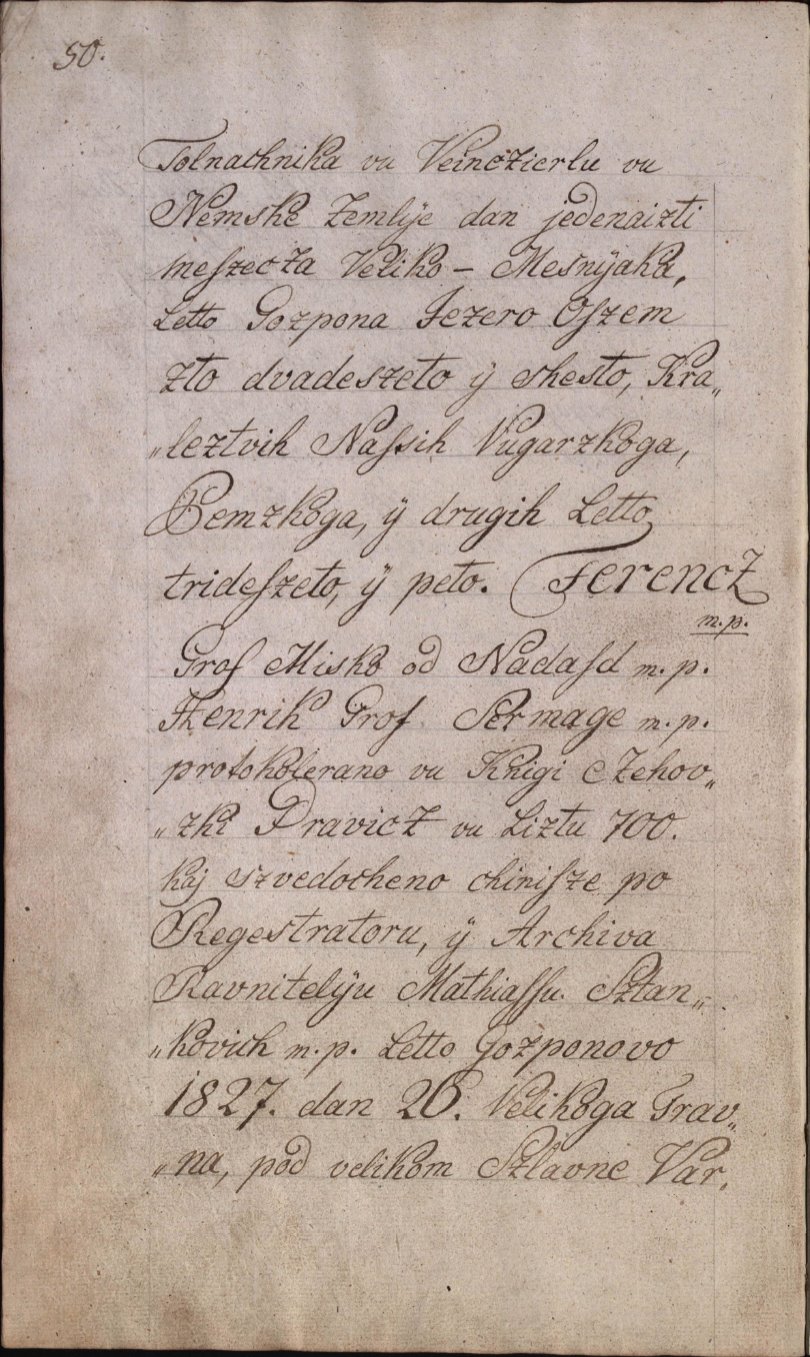 50.
Tolnachnika vu Veinczierlu vu
Nemske Zemlije dan jedenaizti
meszecza Veliko – Mesnijaka,
Letto Gozpona Jezero Oszem
zto dvadeszeto ÿ shesto, Kra„
„leztvih Nassih Vugarzkoga,
Pemzkoga, ÿ drugih Letto
trideszeto, ÿ peto. Ferencz
m.p.
Grof Misko od Nadasd m.p.
Henrik Grof Sermage m.p.
protokolerano vu Knigi Czehov„
„zki Pravicz vu Liztu 700.
kaj szvedocheno chinisze po
Regestratoru, ÿ Archiva
Ravnitelÿu Mathiassu Sztan„
„kovich m.p. Letto Gozponovo
1827. dan 26. Velikoga Trav„
„na, pod velikom Szlavne Var„